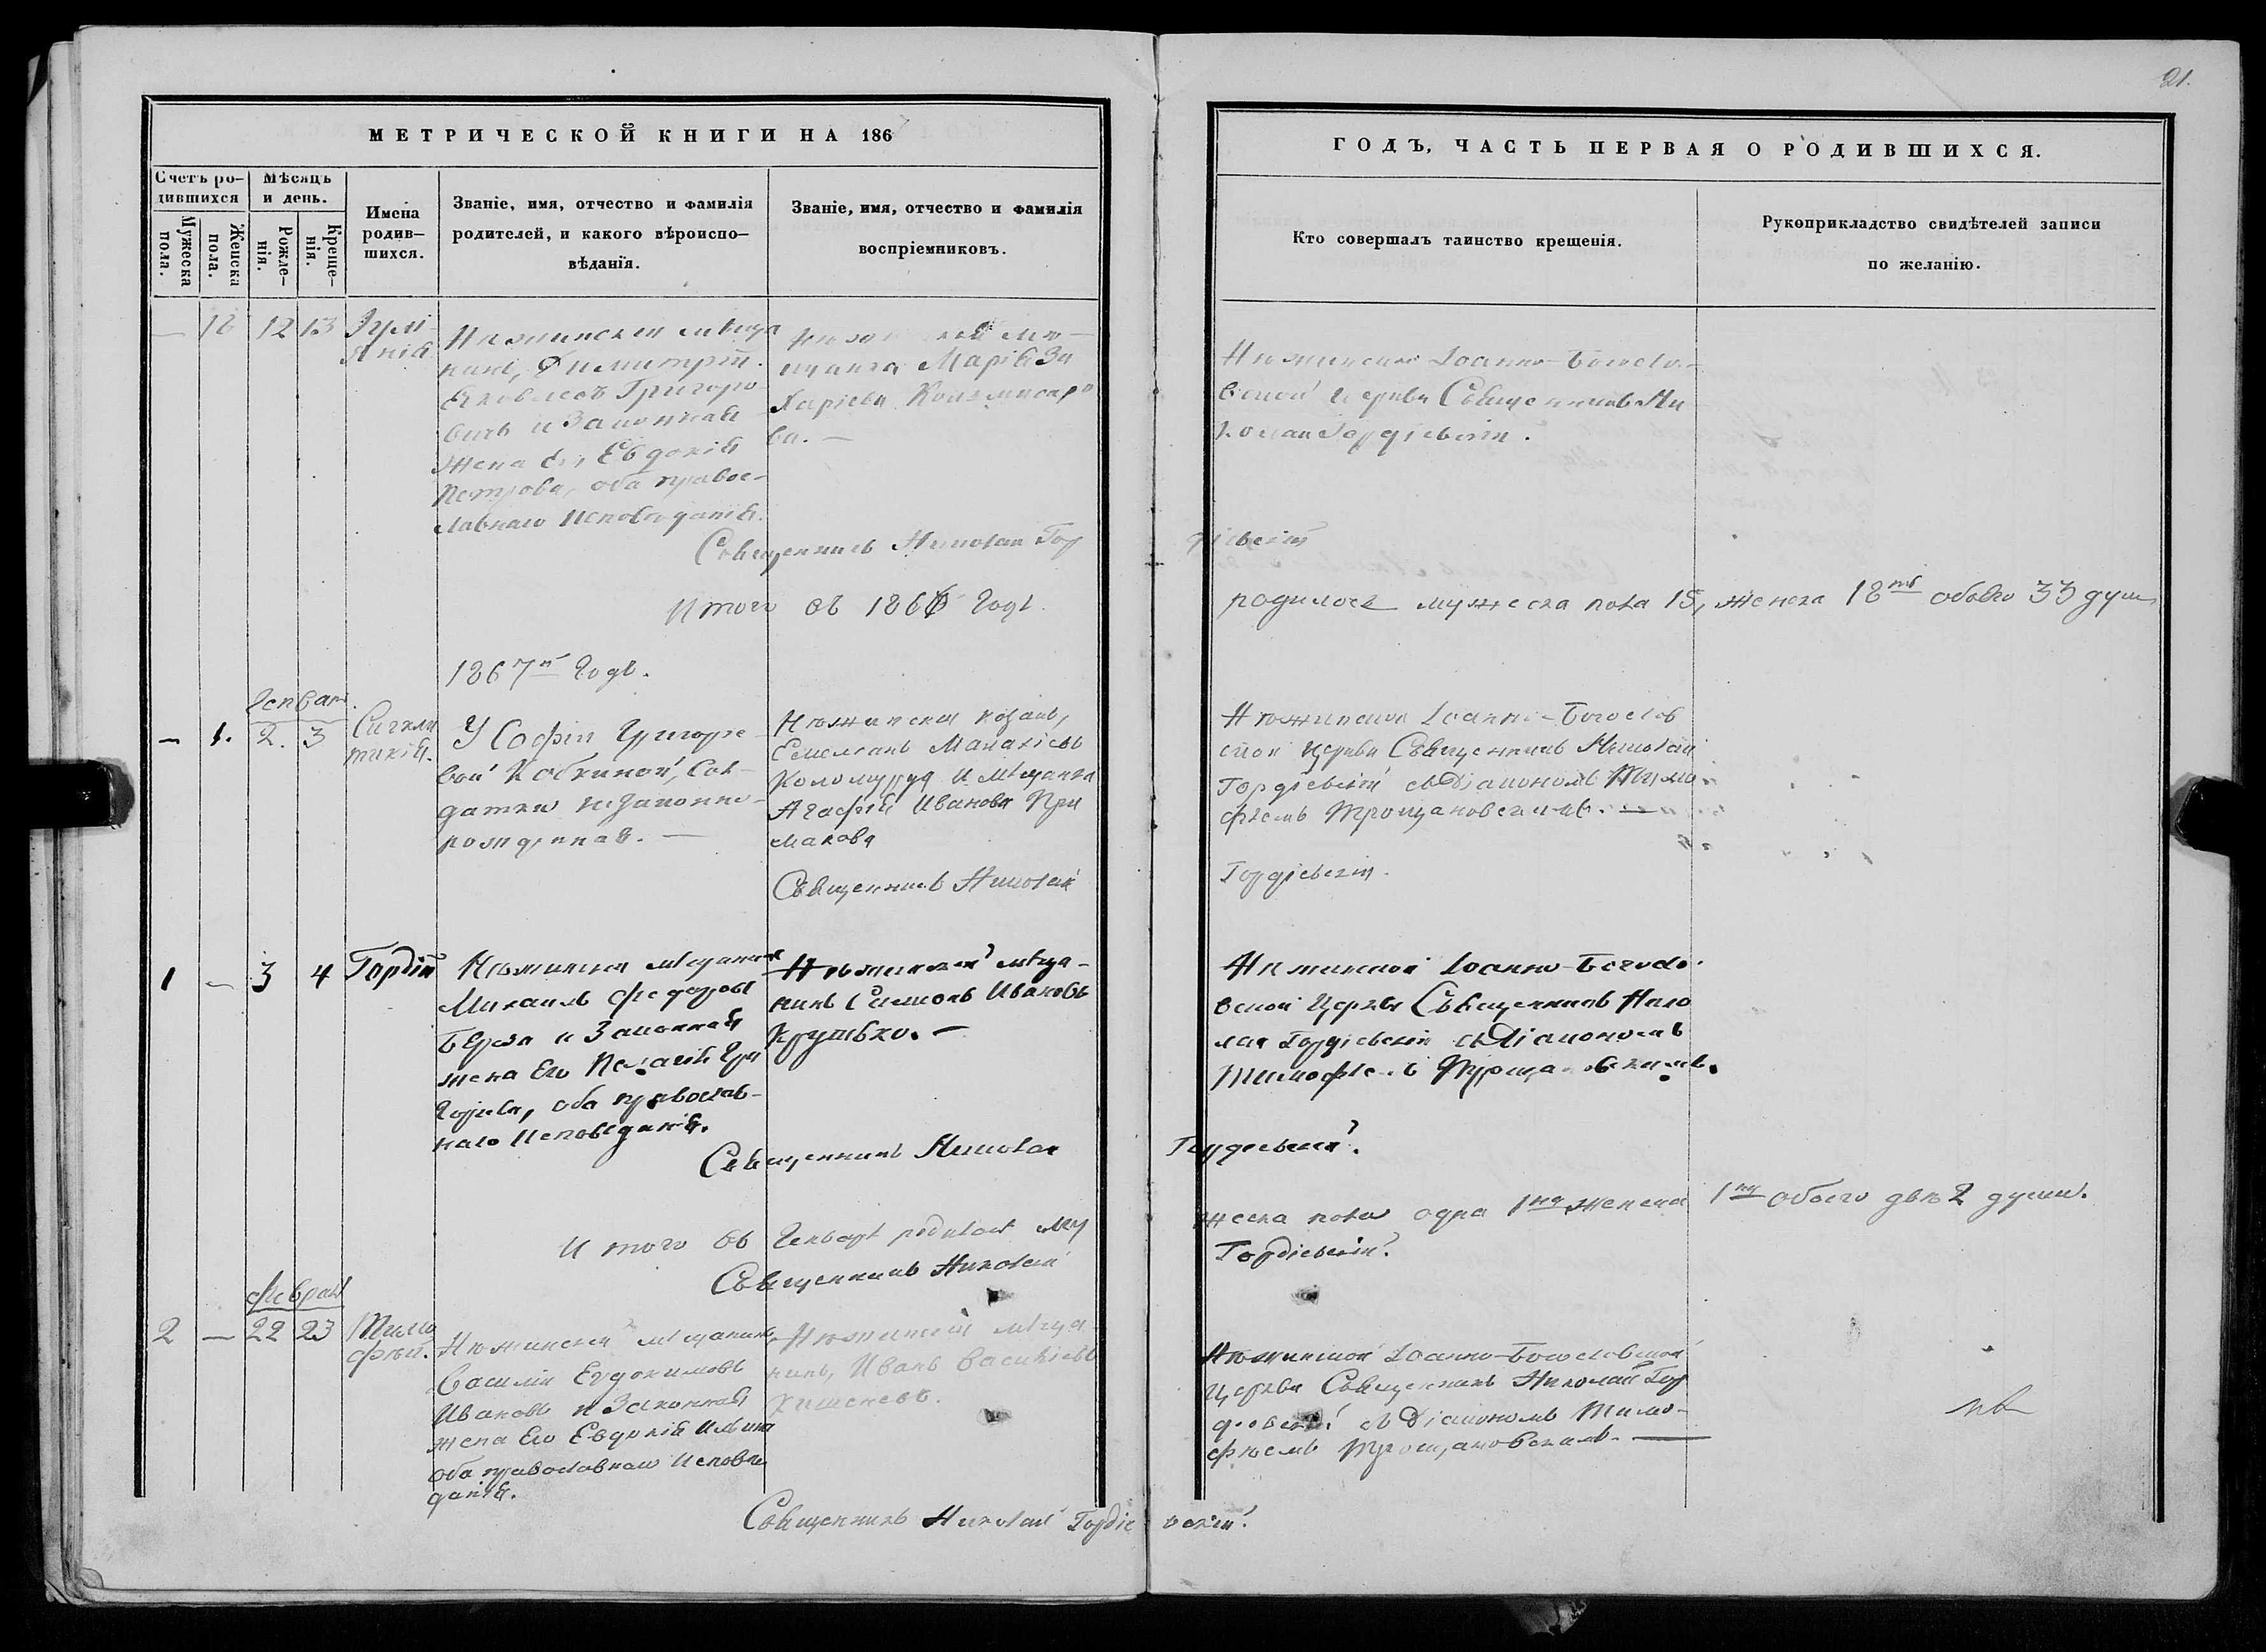 21.
МЕТРИЧЕСКОЙ КНИГИ НА 186
ГОДЪ, ЧАСТЬ ПЕРВАЯ О РОДИВШИХСЯ.
Счетъ ро-
дившихся
Мужеска
пола.
Женска
пола.
Мѣсяцъ
и день.
Рожде-
нія.
Креще-
нія.
Имена
родив-
шихся.
Званіе, имя, отчество и фамилія
родителей, и какого вѣроиспо-
вѣданія.
Званіе, имя, отчество и фамилія
воспріемниковъ.
Кто совершалъ таинство крещенія.
Рукоприкладство свидѣтелей записи
по желанію.
— 18 12 13
Іулі-
анія
Нѣжинскій мѣща
нинъ, Димитрій
Яковлевъ Григоро
вичъ и Законная
жена Его Евдокія
Петрова, оба право-
славнаго Исповѣданія.
Марія За
харіева
ва. —
Нѣжинской Іоанно-Богосло-
вской Церкви Священникъ Ни
колай Гордіевскій.
Священникъ Николай Гор
діевскій
Итого въ 1866 Годѣ
родилось мужеска пола 15, женска 18ть обоего 33 душ
1867й Годъ.
Генварь.
— 1. 2. 3
Синкли
тикія.
У Софіи Григорье
вой Кобкиной, Сол-
датки незаконно-
рожденная. —
Нѣжинскій козакъ,
Емельянъ Малахіевъ
и мѣщанка
Агафія Иванова При
макова
Нѣжинской Іоанно-Богослов
ской Церкви Священникъ Николай
Гордіевскій съ Діакономъ Тимо
фѣемъ Трощановскимъ. —
Священникъ Николай
Гордіевскій.
1 — 3 4
Гордій
Нѣжинскій мѣщанинъ
Михаилъ Федоровъ
и Законная
жена Его Пелагія Гри
горьева, оба православ-
наго Исповѣданія.
Нѣжинскій мѣща-
нинъ Симонъ Ивановъ
Крутько. —
Нѣжинской Іоанно-Богосло-
вской Церкви Священникъ Нико
лай Гордіевскій съ Діакономъ
Тимофѣемъ Трощановскимъ.
Священникъ Николай
Гордіевскій.
Итого въ Генварѣ родилось му
жеска пола одна 1на женска 1на обоего двѣ 2 души.
Священникъ Николай
Гордіевскій.
Февраль
2 — 22 23
Тимо
фѣй.
Нѣжинскій мѣщанинъ
Василій Евдокимовъ
Ивановъ и Законная
жена Его Евдокія Ильина
оба православнаго Исповѣ
данія.
Нѣжинскій мѣща
нинъ, Иванъ Василіевъ
Кишеневъ.
Нѣжинской Іоанно-Богословской
Церкви Священникъ Николай Гор
діевскій съ Діакономъ Тимо-
фѣемъ Трощановскимъ. —
Священникъ Николай Гордіе
вскій.